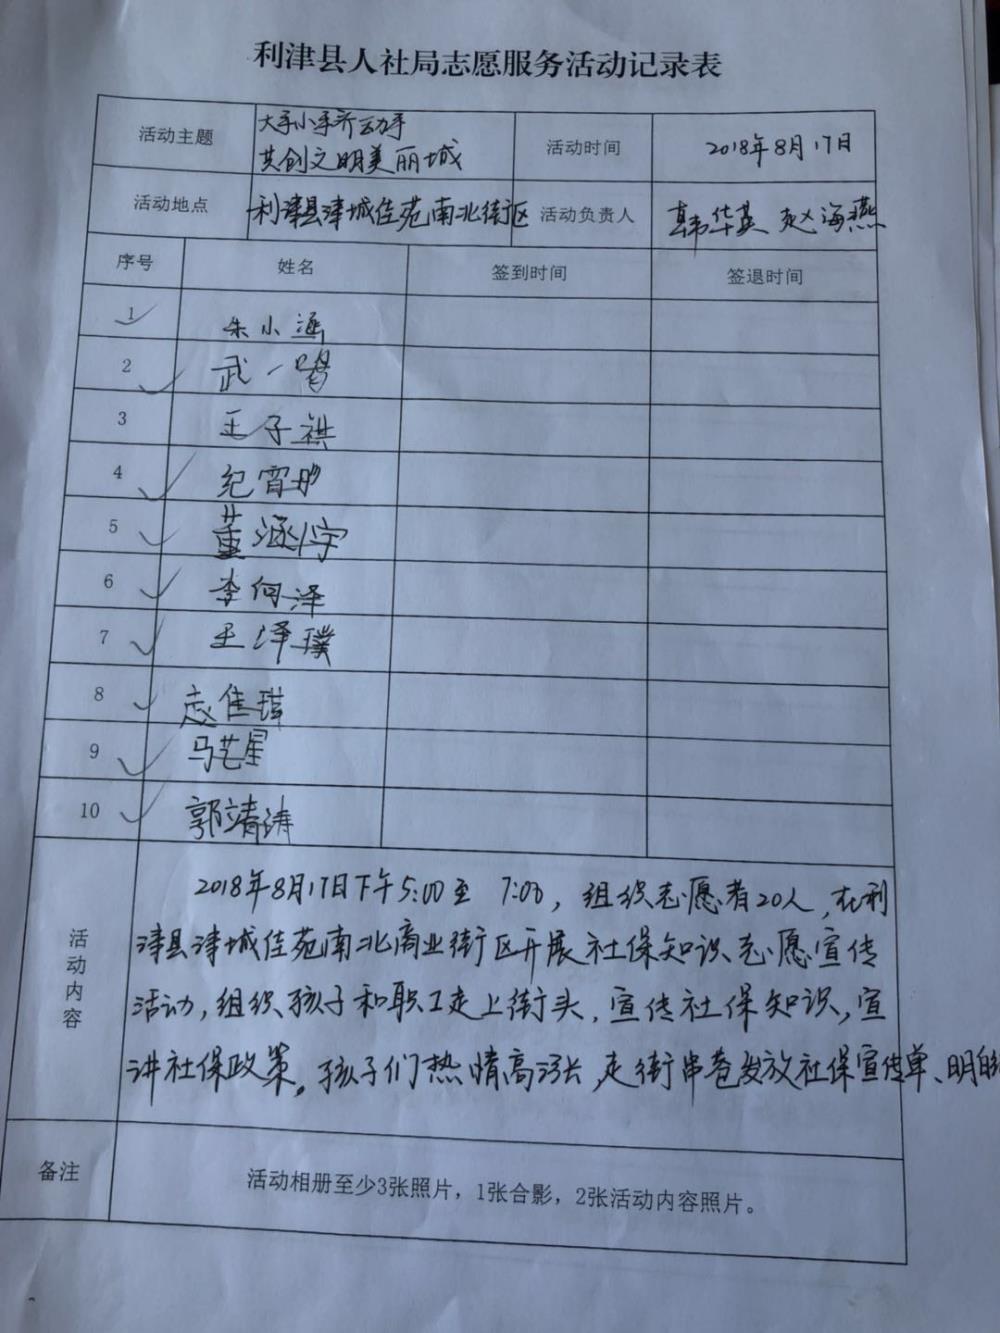 利津县人社局志愿服务活动记录表
活动主题 大手小手齐动手 活动时间 2018年8月17日
共创文明美丽城
活动地点 利津县津城佳苑南北街区 活动负责人 韩华英 赵海燕
序号 姓名 签到时间 签退时间
1 朱小涵
2 武一
3 王子祺
4 纪霄
5 董涵宇
6 李何泽
7 王泽璞
8 赵佳琪
9 马艺星
10 郭靖涛
活动内容
2018年8月17日下午5:00至 7:00，组织志愿者20人，在利
津县津城佳苑南北商业街区开展社保知识志愿宣传
活动，组织孩子和职工走上街头，宣传社保知识，宣
讲社保政策。孩子们热情高涨，走街串巷发放社保宣传单、明白
备注 活动相册至少3张照片，1张合影，2张活动内容照片。